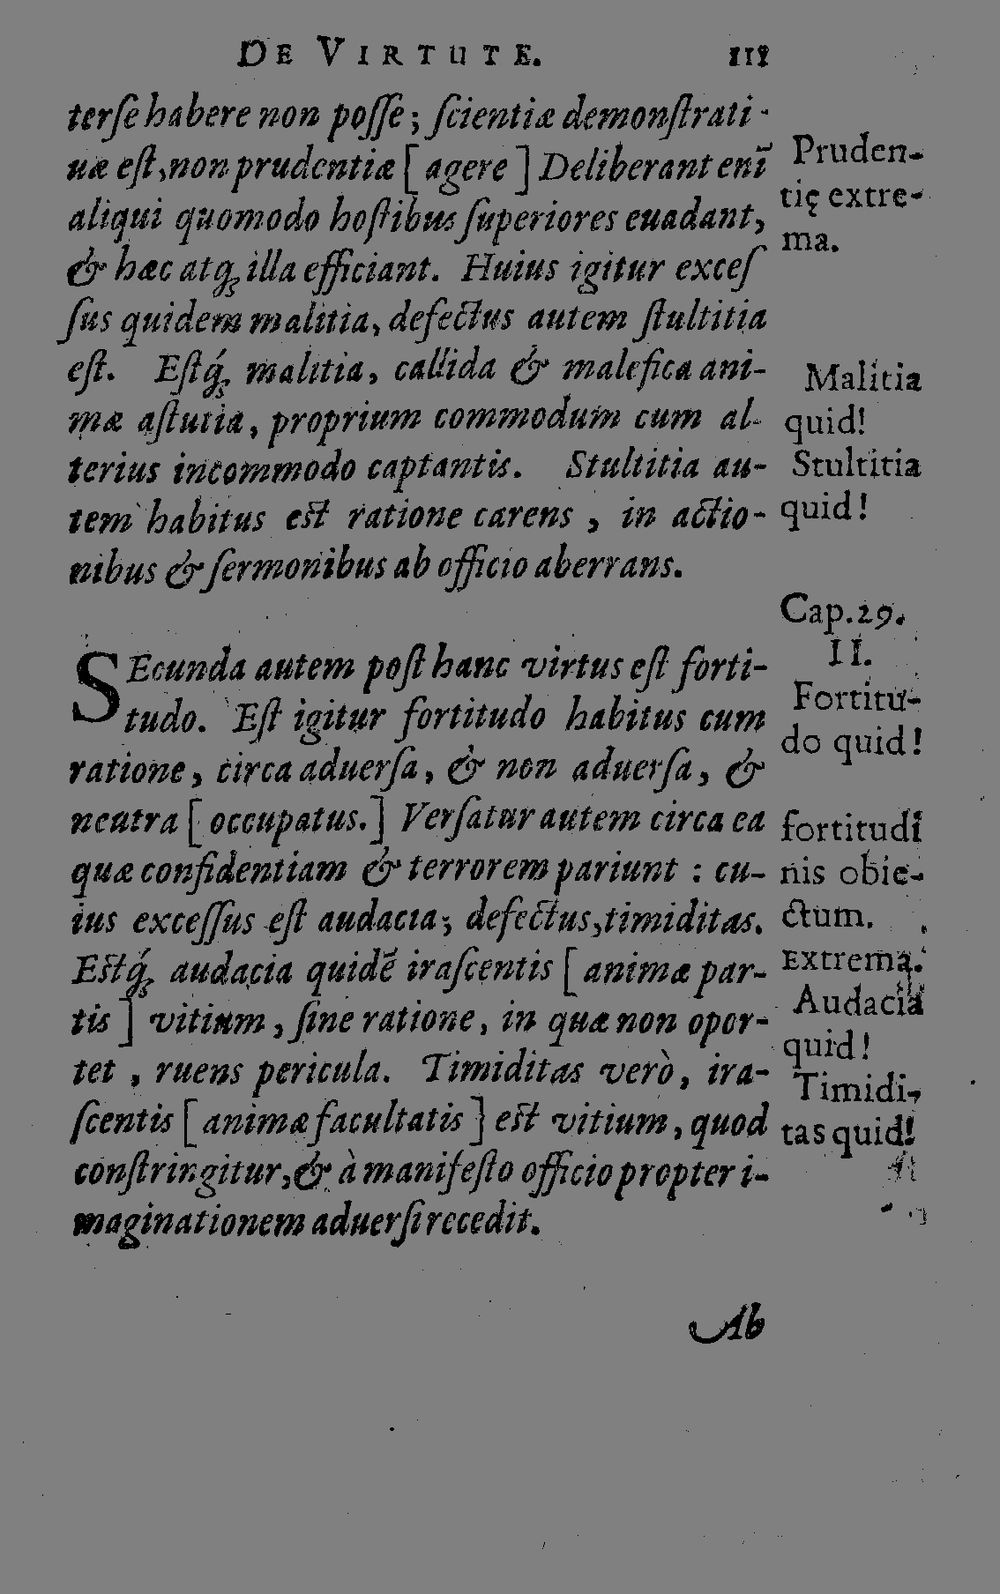 DE VIRTUTE. 111
terſe habere non poſſe; ſcientiæ demonſtrati-
uæ eſt, non prudentiæ [agere] Deliberant enĩ
aliqui quomodo hoſtibus ſuperiores euadant,
& hæc atq; illa efficiant. Huius igitur exceſ
ſus quidem malitia, defectus autem ſtultitia
eſt. Eſtq́; malitia, callida & malefica ani-
mæ aſtutia, proprium commodum cum al-
terius incommodo captantis. Stultitia au-
tem habitus eſt ratione carens, in actio-
nibus & ſermonibus ab officio aberrans.
SEcunda autem poſt hanc virtus eſt forti-
tudo. Eſt igitur fortitudo habitus cum
ratione, circa aduerſa, & non aduerſa, &
neutra [occupatus.] Verſatur autem circa ea
quæ confidentiam & terrorem pariunt: cu-
ius exceſſus eſt audacia; defectus, timiditas.
Eſtq́; audacia quidẽ iraſcentis [animæ par-
tis] vitium, ſine ratione, in quæ non opor-
tet, ruens pericula. Timiditas verò, ira-
ſcentis [animæ facultatis] eſt vitium, quod
conſtringitur, & à manifeſto officio propter i-
maginationem aduerſi recedit.
Ab
Pruden-
tię extre-
ma.
Malitia
quid!
Stultitia
quid!
Cap. 29.
II.
Fortitu-
do quid!
fortitudi
nis obie-
ctum.
Extrema.
Audacia
quid!
Timidi-
tas quid!